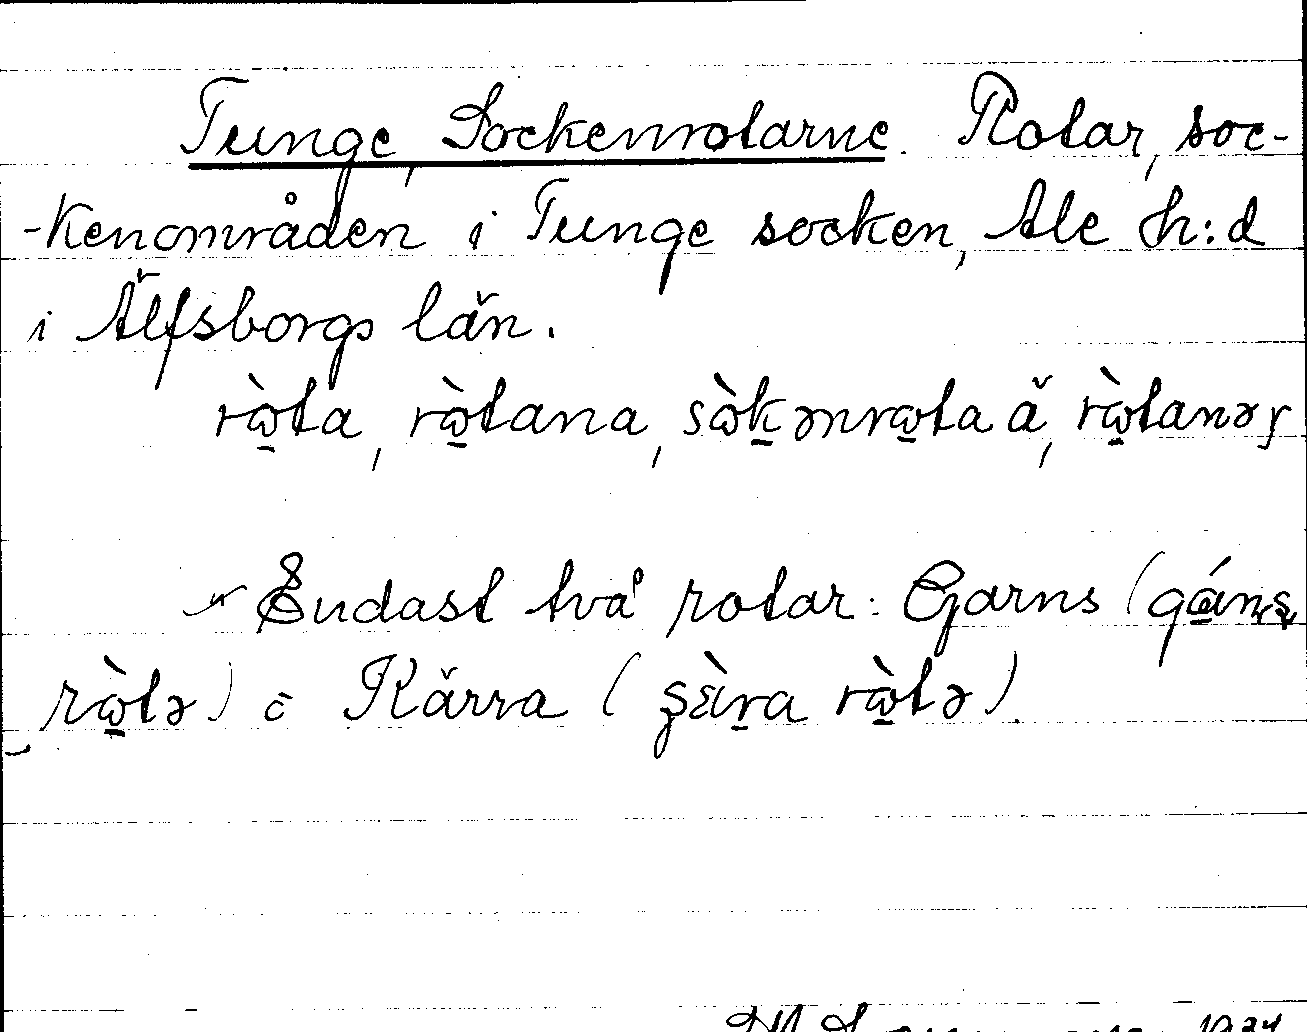 Tunge, Sockenrotarne. Rotar, soc-
-kenområden i Tunge socken, Ale h:d
i Älfsborgs län.
rɷ̀ta, rɷ̀tana, sɷ̀kənrɷta ă, rɷ̀tanəʃ
Endast två rotar: Garns (gáns
rɷ̀tə) o Kärra (ʂæ̀ra rɷ̀tə)
1934